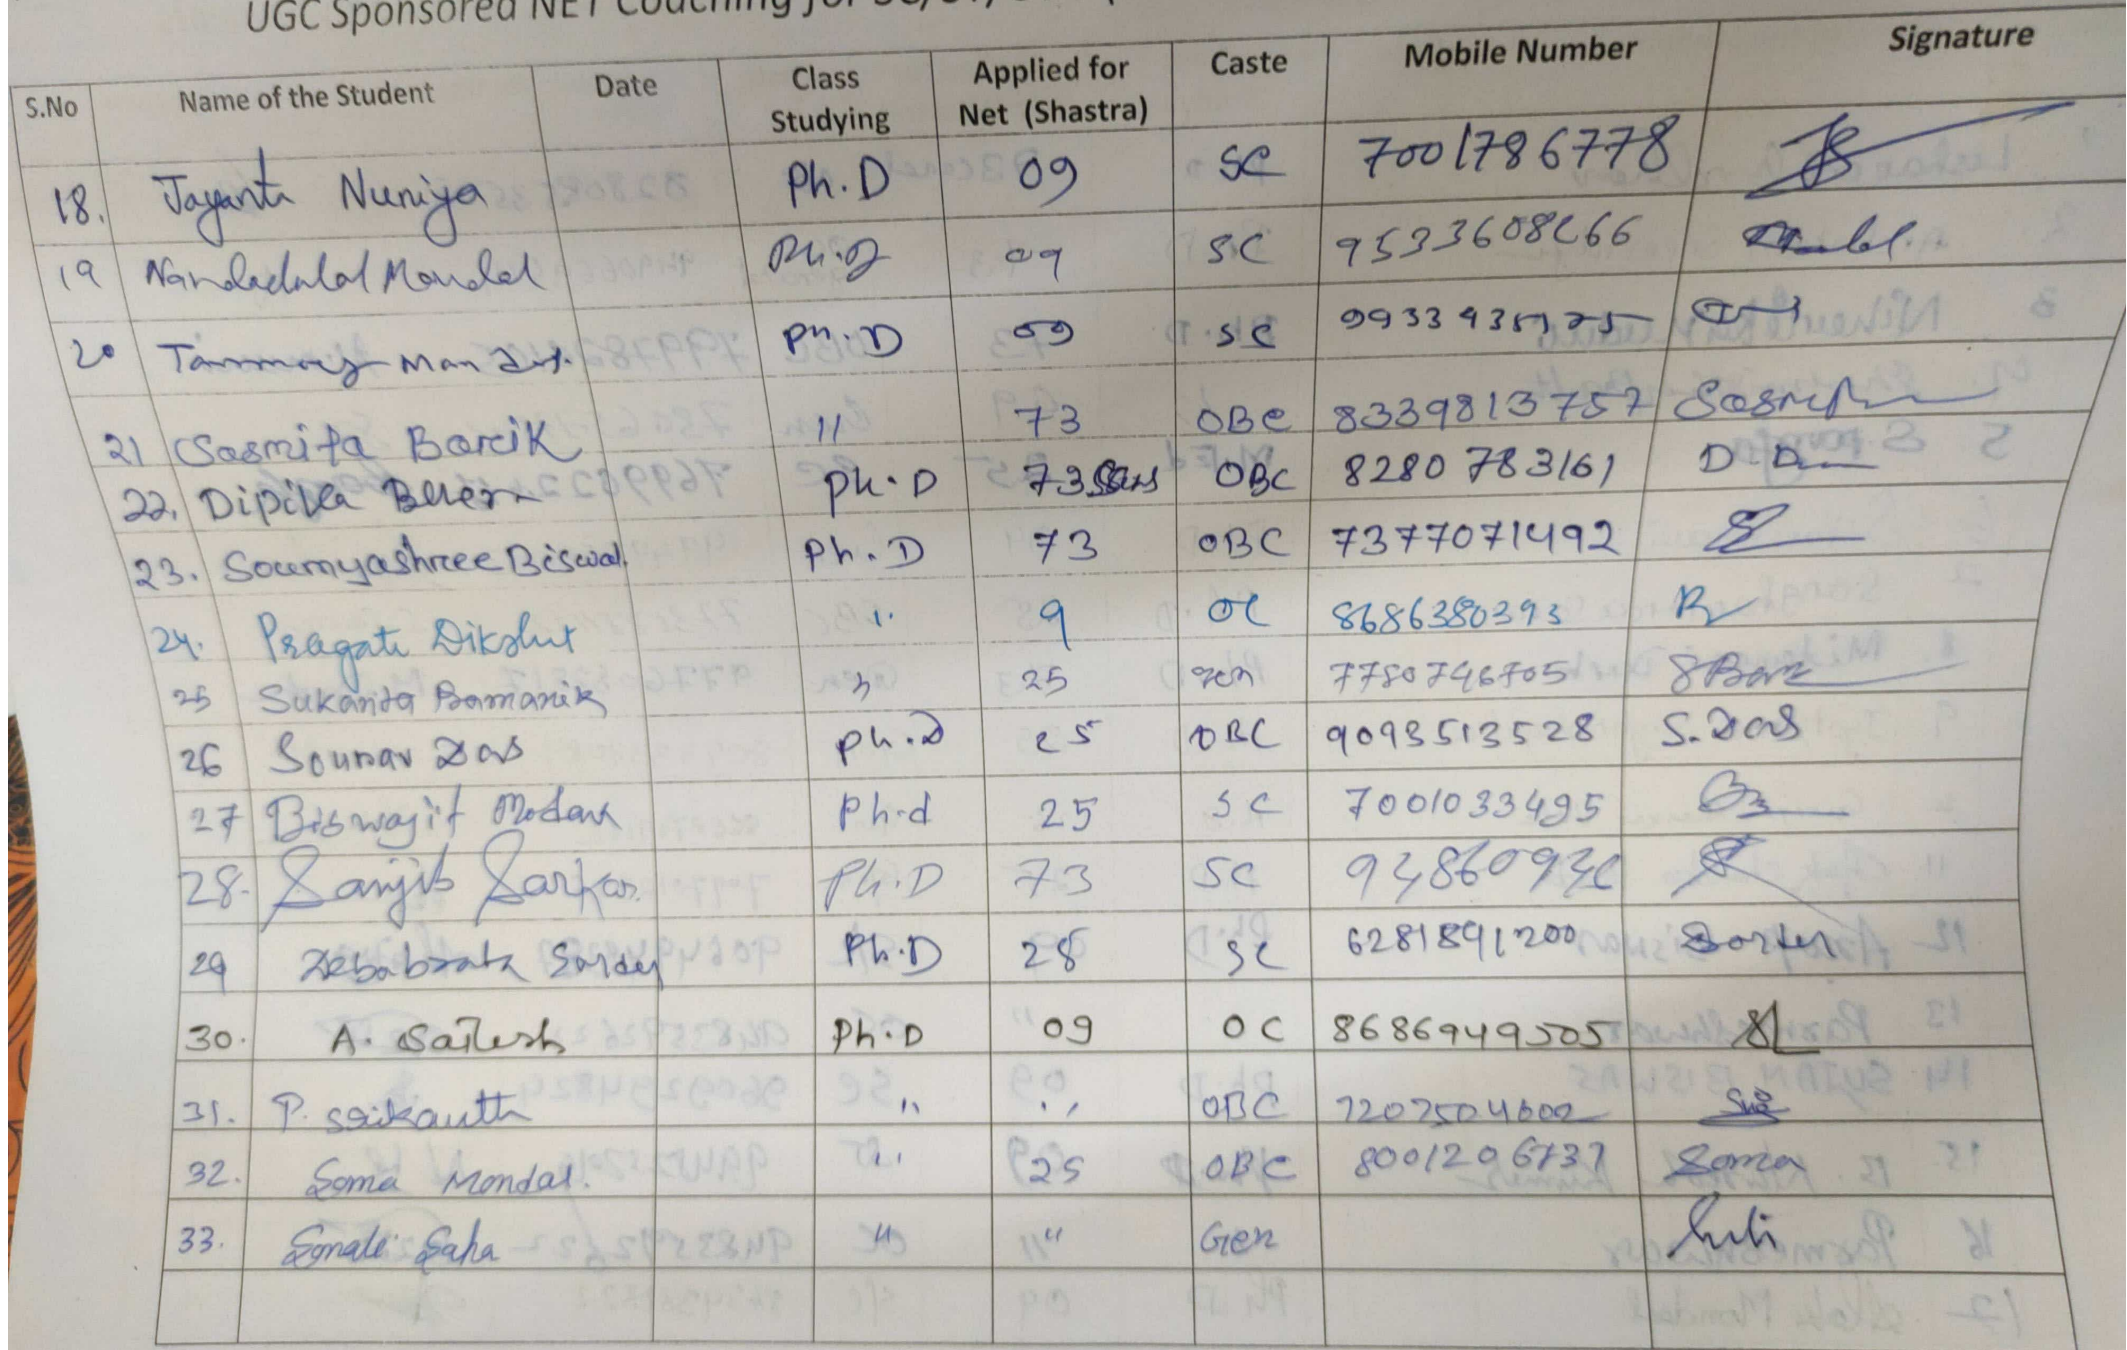 UGC Sponsored NET Coaching for SC/ST/
S.No Name of the Student Date Class Studying Applied for Net (Shastra) Caste Mobile Number Signature
18. Jayanta Nuniya Ph.D 09 SC 7001786778
19 Nandadulal Mondal Ph.D 09 SC
20 Ph.D 09 SC
21 Sasmita Barik 11 73 OBC 8339813757
22. Dipika Behera Ph.D 73 OBC 8280783161
23. Soumyashree Biswal Ph.D 73 OBC 7377071492
24. Pragati Dikshit " 9 OC 8686380393
25 Sukanta Pramanik " 25 gen 7780746705
26 Sounav Das Ph.D 25 OBC 9093513528 S.Das
27 Biswajit Modak Ph.d 25 SC 7001033495
28. Sanjib Sarkar Ph.D 73 SC
29 Debabrata Sarder Ph.D SC 6281891200
30. A. Sailesh Ph.D 09 OC 8686949505
31. P. Srikanth " " OBC
32. Soma Mondal. " 25 OBC Soma
33. Sonali Saha " " Gen